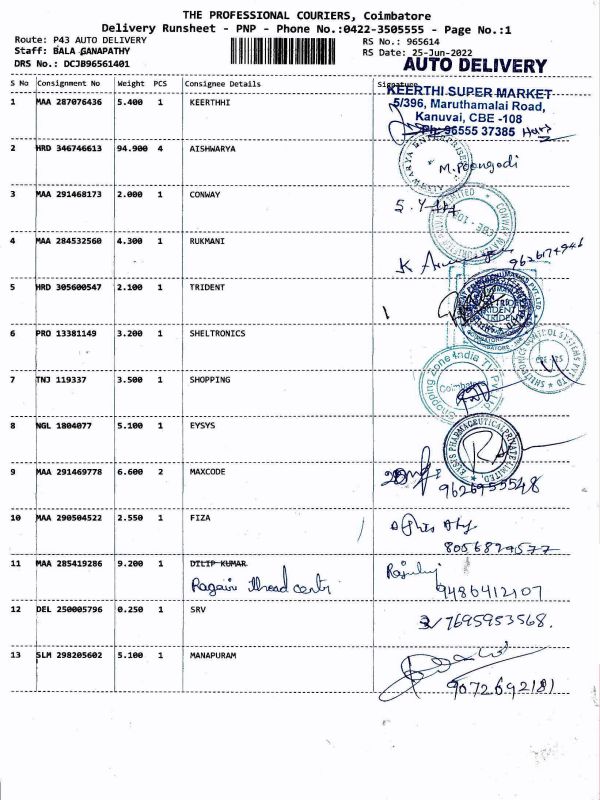 THE PROFESSIONAL COURIERS, Coimbatore
Delivery Runsheet - PNP - Phone No.:0422-3505555 - Page No.:1
Route: P43 AUTO DELIVERY
RS No.: 965614
Staff: BALA GANAPATHY
RS Date: 25-Jun-2022
DRS No.: DCJB96561401
AUTO DELIVERY
S No Consignment No Weight PCS Consignee Details Signature
KEERTHI SUPER MARKET
1 MAA 287076436 5.400 1 KEERTHHI
5/396, Maruthamalai Road,
Kanuvai, CBE -108
Ph: 96555 37385
2 HRD 346746613 94.900 4 AISHWARYA
M.Poongodi
3 MAA 291468173 2.000 1 CONWAY
4 MAA 284532560 4.300 1 RUKMANI
K
5 HRD 305600547 2.100 1 TRIDENT
TRIDENT
6 PRO 13381149 3.200 1 SHELTRONICS
7 TNJ 119337 3.500 1 SHOPPING
Shopping Zone India TV Pvt
Coimbatore
8 NGL 1804077 5.100 1 EYSYS
EYSYS PHARMACEUTICAL PRIVATE LIMITED
9 MAA 291469778 6.600 2 MAXCODE
9626955548
10 MAA 290504522 2.550 1 FIZA
8056829577
11 MAA 285419286 9.200 1 DILIP KUMAR
Ragavi thread centr
9486412107
12 DEL 250005796 0.250 1 SRV
7695953568.
13 SLM 298205602 5.100 1 MANAPURAM
9072692181